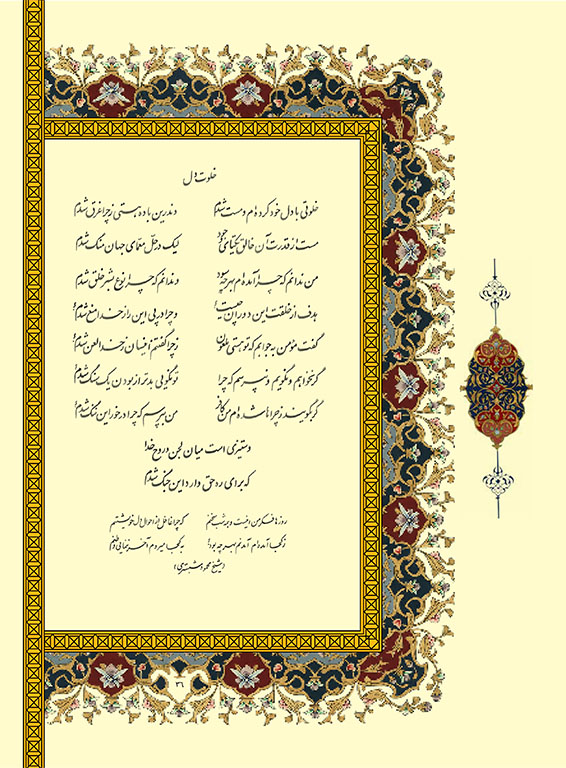 خلوت دل
خلوتی با دل خود کرده‌ام و مست شدم وندرین باده هستی ز چرا غرق شدم
مست از قدرت آن خالق یکتای خود لیک در حل معمای جهان منگ شدم
من ندانم که چرا آمده‌ام بهر چه بود و ندانم که چرا نوع بشر خلق شدم
هدف از خلقت این دوران چیست و چرا در پی این راز خدا منع شدم
گفت مومن به جوابم که تو هستی ملعون
گر نخواهم و نگویم و نپرسم که چرا تو بگویی بدتر از بودن یک سنگ شدم
گر بگویند ز چراها شده‌ام من کافر من بپرسم که چرا در خور این ننگ شدم
و ستیزی است میان لجن و روح خدا
که برای ره حق دارد این جنگ شدم
روزها فکر من این است و همه شب سخنم که چرا غافل از احوال دل خویشتنم
ز کجا آمده‌ام آمدنم بهر چه بود به کجا میروم آخر ننمایی وطنم
(شیخ محمود شبستری)
۲۶